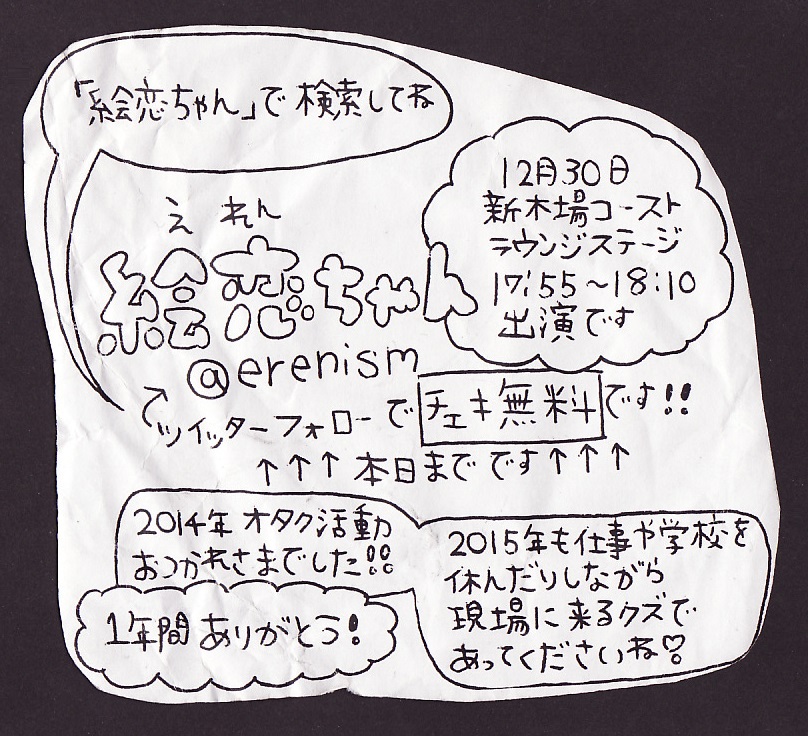 「絵恋ちゃん」で検索してね
12月30日
新木場コースト
ラウンジステージ
17:55〜18:10
出演です
えれん
絵恋ちゃん
@erenism
ツイッターフォローでチェキ無料です!!
↑↑↑本日までです↑↑↑
2014年オタク活動
おつかれさまでした!!
1年間ありがとう!
2015年も仕事や学校を
休んだりしながら
現場に来るクズで
あってくださいね♡